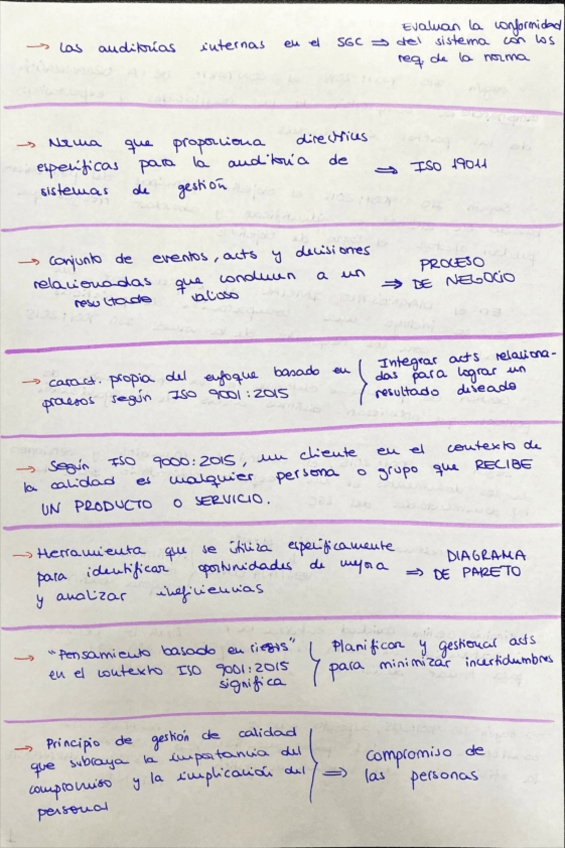 → Las auditorías internas en el SGC ⇒ Evaluan la conformidad
del sistema con los
req. de la norma
→ Norma que proporciona directrices
específicas para la auditoría de
sistemas de gestión
⇒ ISO 19011
→ conjunto de eventos, acts y decisiones
relacionadas que conducen a un
resultado valioso
⇒ PROCESO
DE NEGOCIO
→ caract. propia del enfoque basado en
procesos según ISO 9001:2015
Integrar acts relaciona-
das para lograr un
resultado deseado
→ Según ISO 9000:2015, un cliente en el contexto de
la calidad es cualquier persona o grupo que RECIBE
UN PRODUCTO O SERVICIO.
→ Herramienta que se utiliza específicamente
para identificar oportunidades de mejora
y analizar ineficiencias
⇒ DIAGRAMA
DE PARETO
→ "Pensamiento basado en riesgos"
en el contexto ISO 9001:2015
significa
Planificar y gestionar acts
para minimizar incertidumbres
→ Principio de gestión de calidad
que subraya la importancia del
compromiso y la implicación del
personal
⇒ compromiso de
las personas